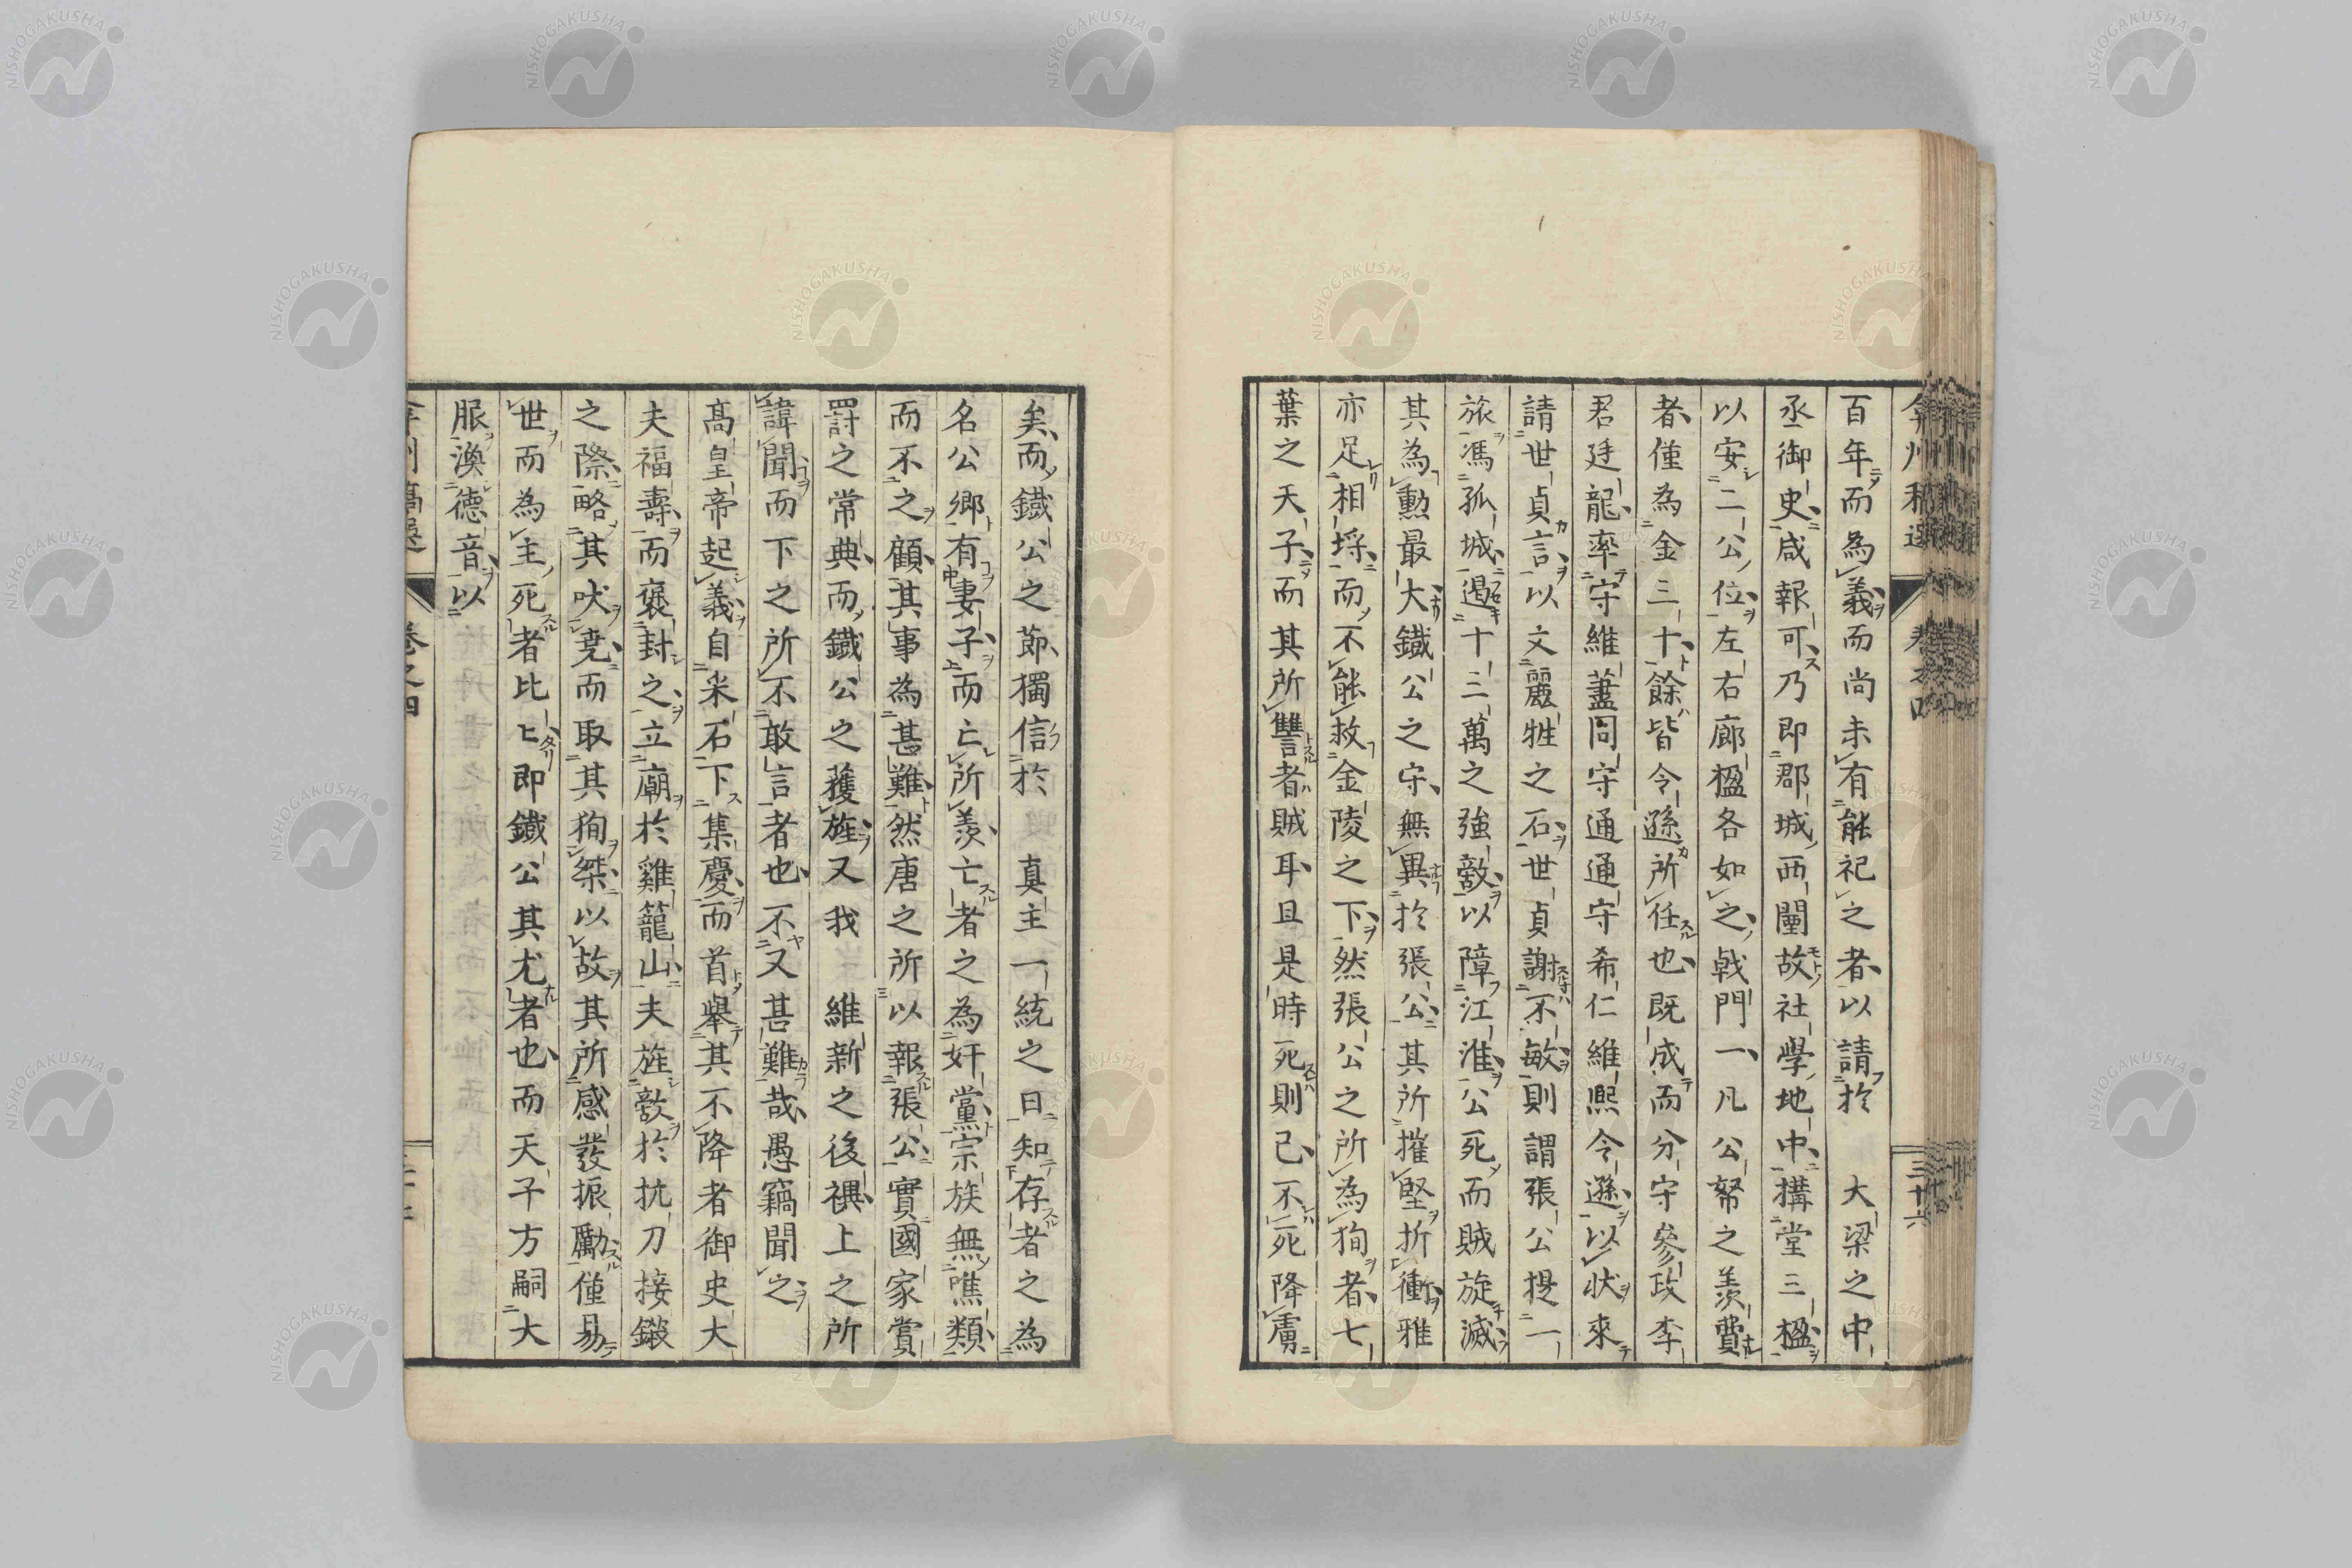 百年而為義而尚未有能祀之者以請於　大梁之中
丞御史咸報可乃即郡城西闉故社學地中搆堂三楹
以安二公位左右廊楹各如之戟門一凡公帑之羨費
者僅為金三十餘皆令遜所任也既成而分守參政李
君廷龍率守維藎同守通通守希仁維熙令遜以狀來
請世貞言以文麗牲之石世貞謝不敏則謂張公提一
旅馮孤城遏十三萬之強敵以障江淮公死而賊旋滅
其為勳最大鐵公之守無異於張公其所摧堅折衝雅
亦足相埒而不能救金陵之下然張公之所為狥者七
葉之天子而其所讐者賊耳且是時死則已不死降虜
矣而鐵公之節獨信於　真主一統之日知存者之為
名公卿有妻子而亡所羨亡者之為奸黨宗族無噍類
而不之顧其事為甚難然唐之所以報張公實國家賞
罰之常典而鐵公之蕿旌又我　維新之後禩上之所
諱聞而下之所不敢言者也不又甚難哉愚竊聞之
高皇帝起義自采石下集慶而首舉其不降者御史大
夫福壽而褒封之立廟於雞籠山夫旌敵於抗刀接鍛
之際略其吠堯而取其狥桀以故其所感發振勵僅易
世而為主死者比比即鐵公其尤者也而天子方嗣大
服渙德音以
卷之四
三十六
NISHOGAKUSHA